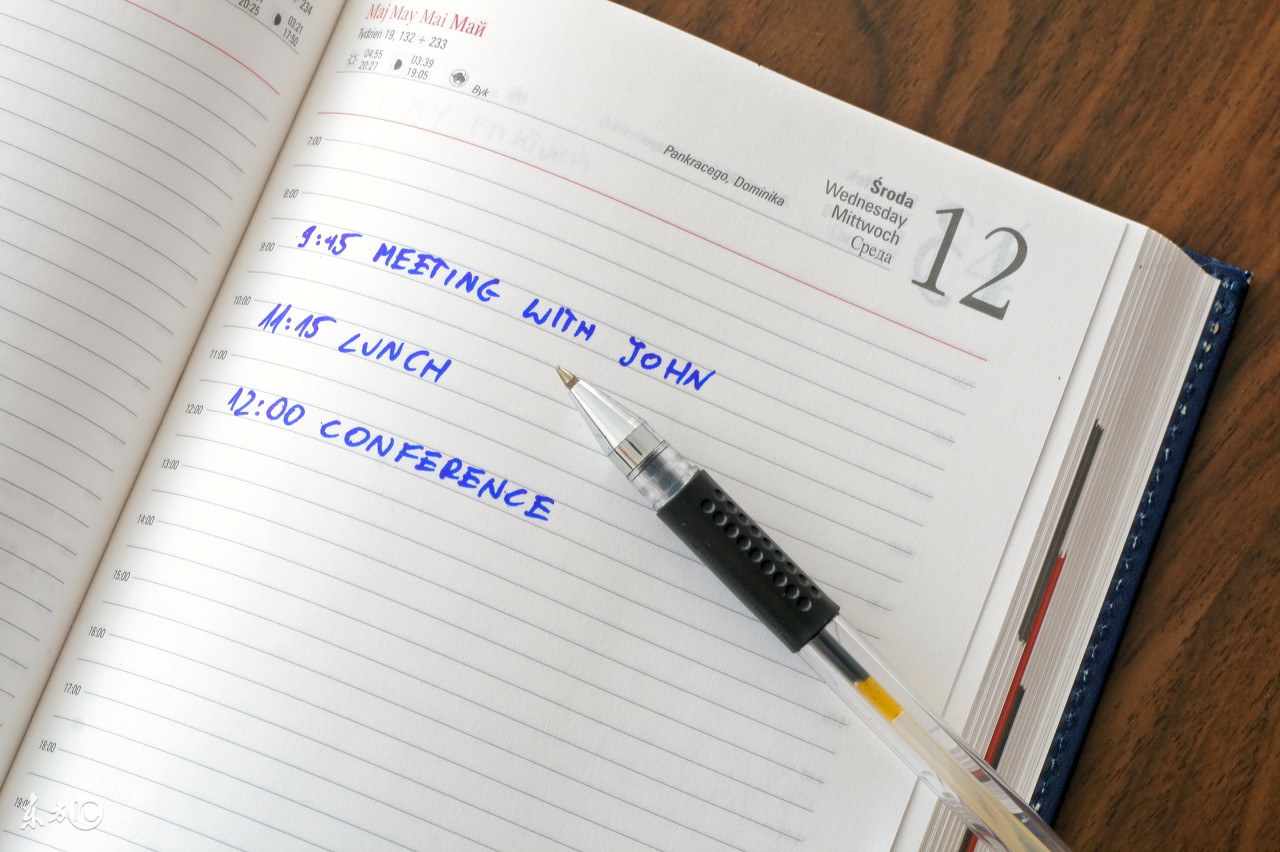 20:25
03:21
17:50
234
Maj May Mai Май
Tydzień 19, 132 + 233
04:55
20:27
03:39
19:05
Byk
Pankracego, Dominika
Środa
Wednesday
Mittwoch
Среда
12
7:00
8:00
9:00
9:45 MEETING WITH JOHN
10:00
11:15 LUNCH
11:00
12:00 CONFERENCE
12:00
13:00
14:00
15:00
16:00
17:00
18:00